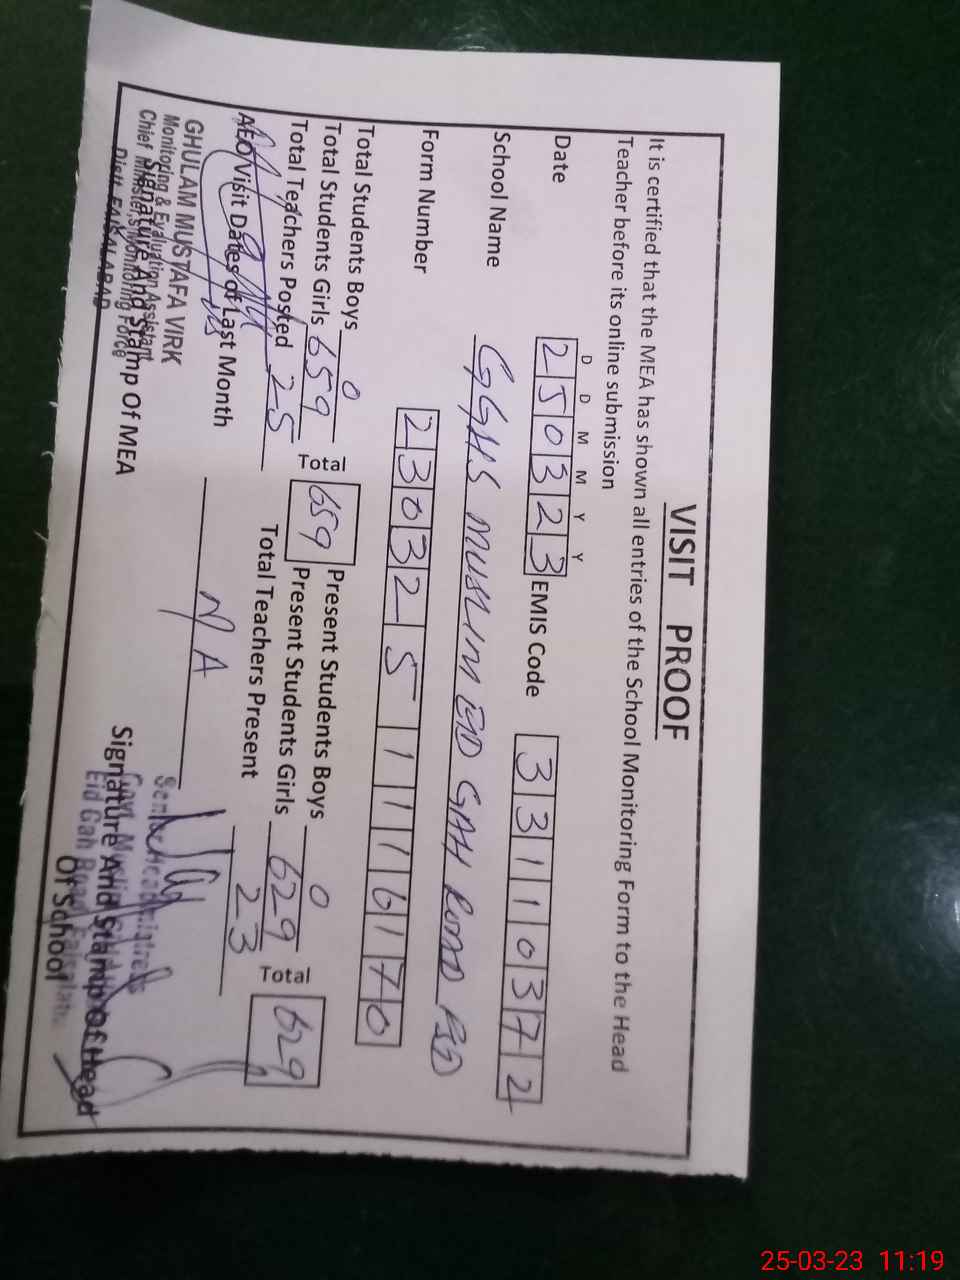 VISIT PROOF
It is certified that the MEA has shown all entries of the School Monitoring Form to the Head
Teacher before its online submission
D D M M Y Y
Date 250323 EMIS Code 33110372
School Name GGHS MUSLIM EID GAH ROAD FSD
Form Number 2303251116170
Total Students Boys 0 Total 659 Present Students Boys 0 Total 629
Total Students Girls 659 Present Students Girls 629
Total Teachers Posted 25 Total Teachers Present 23
AEO Visit Dates of Last Month N A
GHULAM MUSTAFA VIRK
Monitoring & Evaluation Assistant
Chief Minister,s Monitoring Force
Distt. FAISALABAD
Signature And Stamp Of MEA
Senior Headmistress
Govt. Muslim
Eid Gah Road Faisalabad
Signature And Stamp Of Head
Of School
25-03-23 11:19